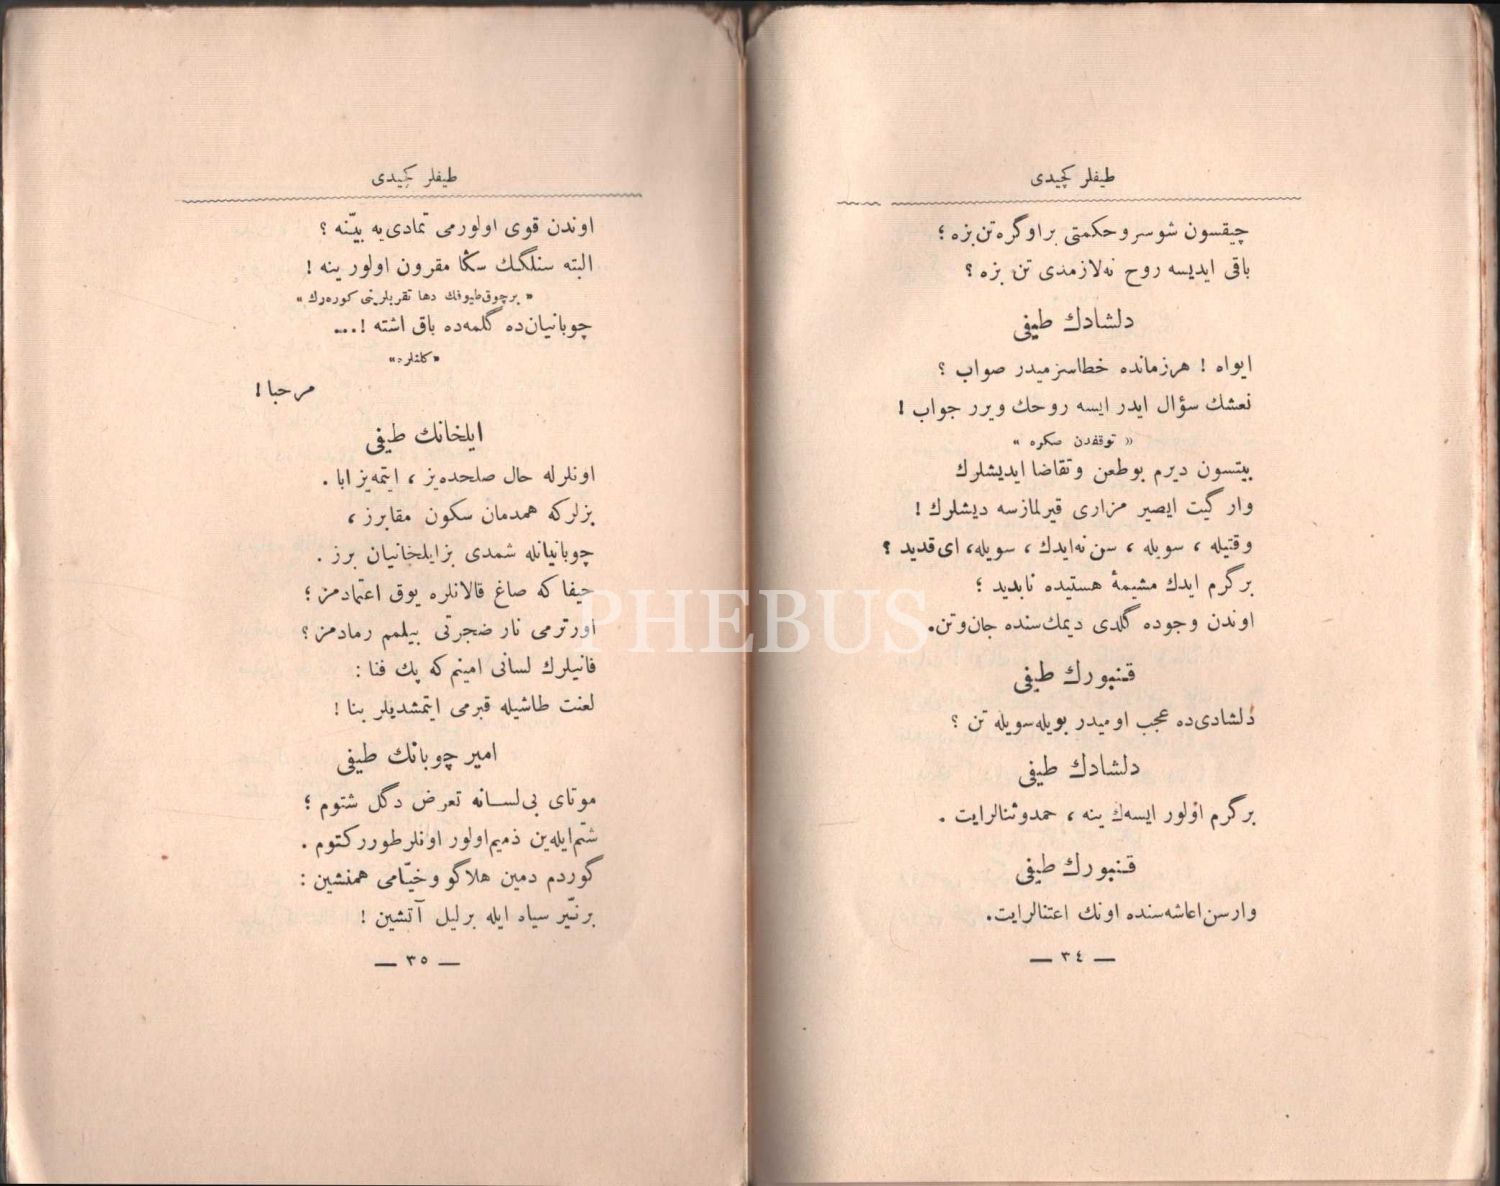 طيفلر كچيدى
چيقسون شو سر و حكمتى بر اوگره تن بزه ؛
باقى ايديسه روح نه لازمدى تن بزه ؟
دلشادك طيفى
ايواه ! هر زمانده خطاسزميدر صواب ؟
نعشك سؤال ايدر ايسه روحك ويرر جواب !
« توقفدن صكره »
بيتسون ديرم بو طعن و تقاضا ايديشلرك
وار گيت ايصير مزارى قيرلمازسه ديشلرك !
وقتيله ، سويله ، سن نه ايدك ، سويله، اى قديد ؟
بر گرم ايدك مشيمهٔ هستيده نابديد ؛
اوندن وجوده گلدى ديمك سنده جان و تن.
قنبورك طيفى
دلشادى ده عجب او ميدر بويله سويله تن ؟
دلشادك طيفى
بر گرم اولور ايسه ك ينه ، حمد و ثنالر ايت .
قنبورك طيفى
وارسن اعاشه سنده اونك اعتنالر ايت.
— ٣٤ —
طيفلر كچيدى
اوندن قوى اولورمى تمادى يه بيّنه ؟
البته سنلگك سڭا مقرون اولور ينه !
« بر چوق طيوفك دها تقربلرينى كوره رك »
چوبانيان ده گلمه ده باق اشته !...
« كلنلره »
مرحبا !
ايلخانك طيفى
اونلرله حال صلحده يز ، ايتمه يز ابا .
بزلركه همدمان سكون مقابرز ،
چوبانيانله شمدى بز ايلخانيان برز .
حيفا كه صاغ قالانلره يوق اعتمادمز ؛
اورترمى نار ضجرتى بيلمم رمادمز ؟
فانيلرك لسانى امينم كه پك فنا :
لعنت طاشيله قبرمى ايتمشديلر بنا !
امير چوبانك طيفى
موتاى بى لسانه تعرض دگل شتوم ؛
شتم ايله ين ذميم اولور اونلر طورر كتوم .
گوردم دمين هلاگو و خيّامى همنشين :
بر نيّر سياه ايله بر ليل آتشين !
— ٣٥ —
PHEBUS